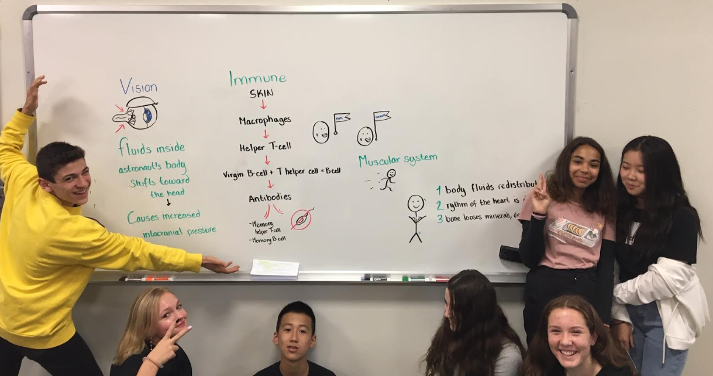 Vision
fluids inside
astronauts body
shifts toward
the head
Causes increased
intracranial pressure
Immune
SKIN
Macrophages
Helper T-cell
Virgin B-cell + T helper cell = B-cell
Antibodies
- Memory
helper T-cell
- Memory B-cell
Muscular system
1 body fluids redistribut
2 rythm of the heart is
3 bone looses minerals,